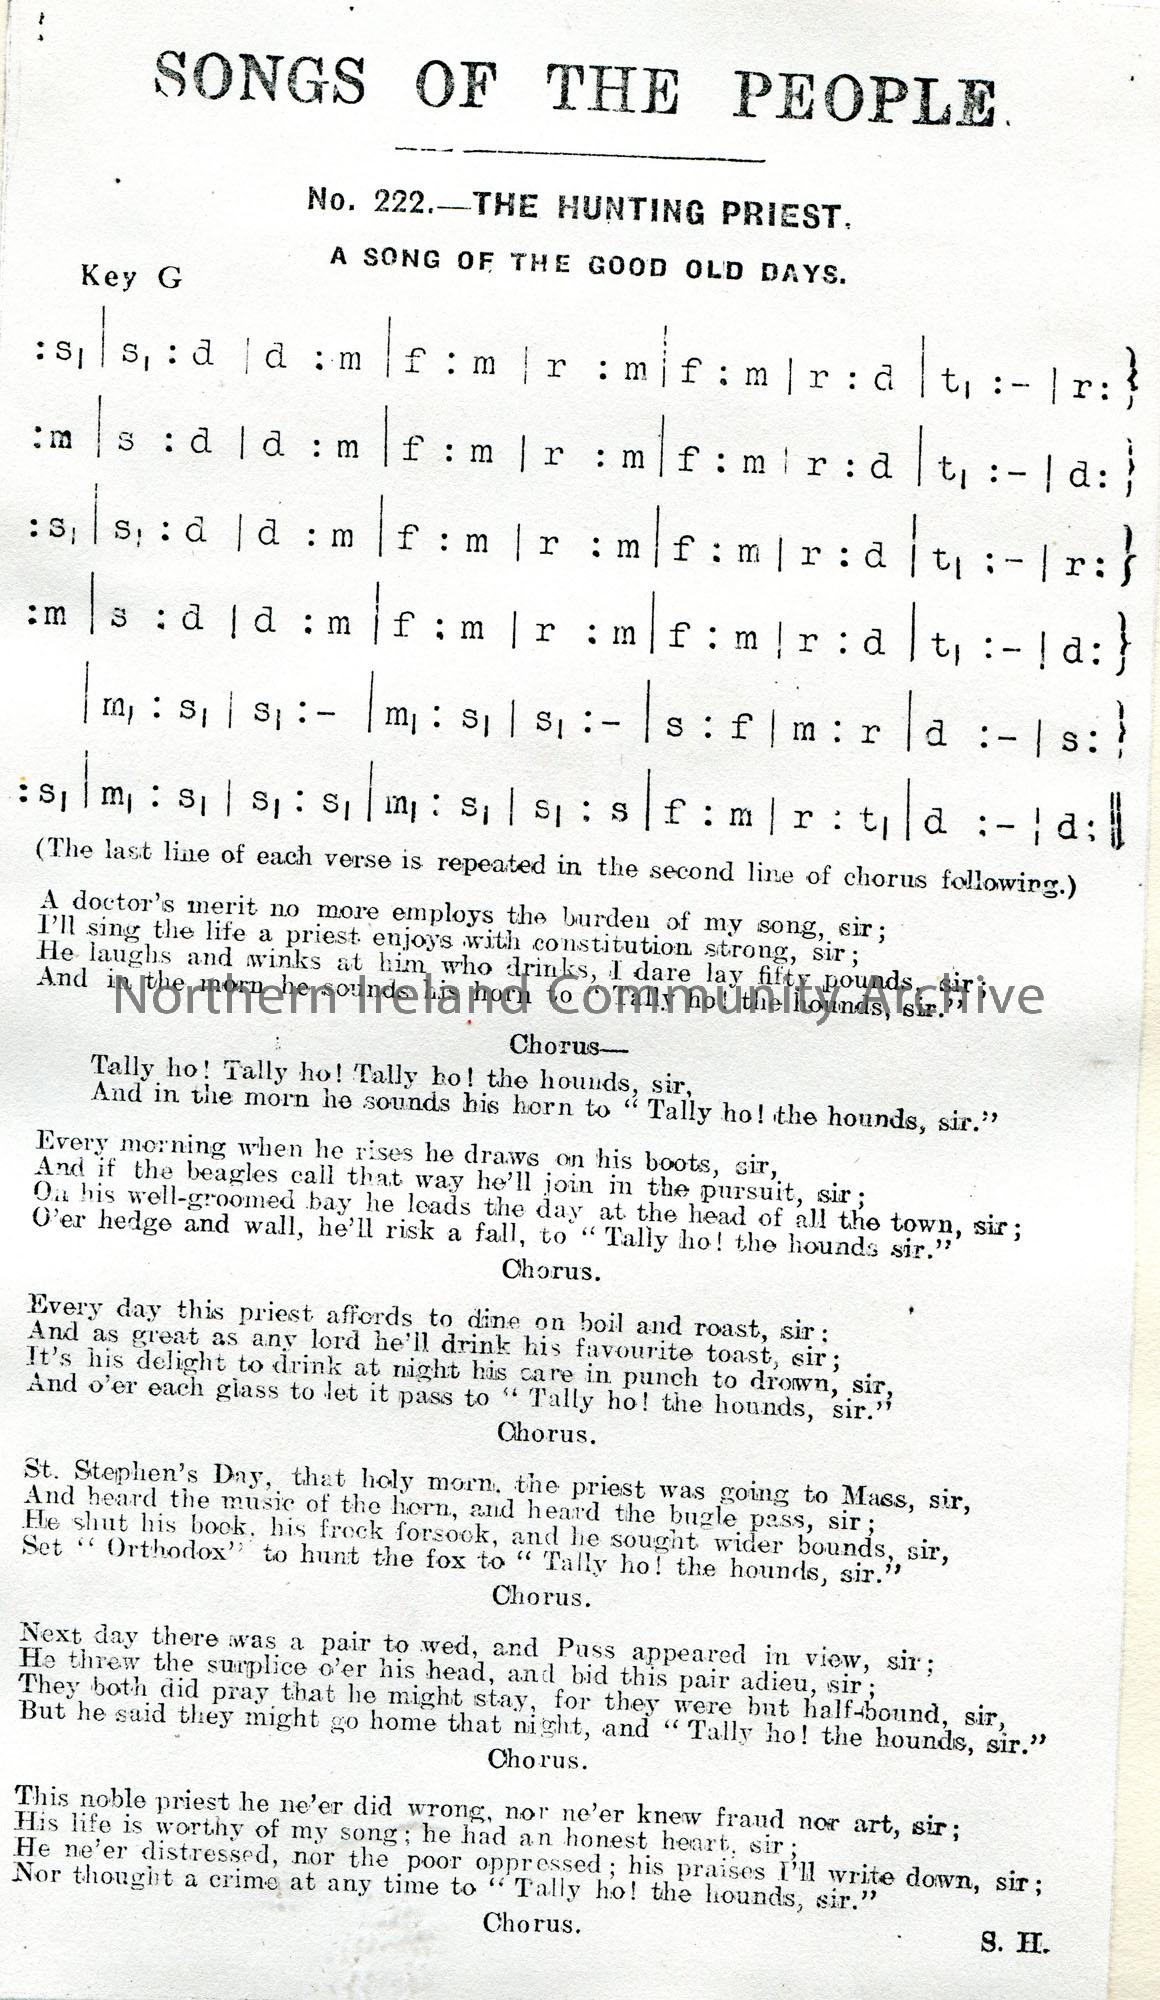 SONGS OF THE PEOPLE.
No. 222.—THE HUNTING PRIEST.
A SONG OF THE GOOD OLD DAYS.
Key G
:s₁|s₁:d |d :m|f:m|r :m|f:m|r:d|t₁:-|r:}
:m|s :d|d :m|f:m|r :m|f:m|r:d|t₁:-|d:}
:s₁|s₁:d |d :m|f:m|r :m|f:m|r:d|t₁:-|r:}
:m|s :d|d :m|f:m|r :m|f:m|r:d|t₁:-|d:}
|m₁:s₁|s₁:- |m₁:s₁|s₁:-|s:f|m:r|d :-|s:}
:s₁|m₁:s₁|s₁:s₁|m₁:s₁|s₁:s|f:m|r:t₁|d :-|d:‖
(The last line of each verse is repeated in the second line of chorus following.)
A doctor's merit no more employs the burden of my song, sir;
I'll sing the life a priest enjoys with constitution strong, sir;
He laughs and winks at him who drinks, I dare lay fifty pounds, sir;
And in the morn he sounds his horn to "Tally ho! the hounds, sir."
Northern Ireland Community Archive
Chorus—
Tally ho! Tally ho! Tally ho! the hounds, sir,
And in the morn he sounds his horn to "Tally ho! the hounds, sir."
Every morning when he rises he draws on his boots, sir,
And if the beagles call that way he'll join in the pursuit, sir;
On his well-groomed bay he leads the day at the head of all the town, sir;
O'er hedge and wall, he'll risk a fall, to "Tally ho! the hounds sir."
Chorus.
Every day this priest affords to dine on boil and roast, sir;
And as great as any lord he'll drink his favourite toast, sir;
It's his delight to drink at night his care in punch to drown, sir,
And o'er each glass to let it pass to "Tally ho! the hounds, sir."
Chorus.
St. Stephen's Day, that holy morn, the priest was going to Mass, sir,
And heard the music of the horn, and heard the bugle pass, sir;
He shut his book, his frock forsook, and he sought wider bounds, sir,
Set "Orthodox" to hunt the fox to "Tally ho! the hounds, sir."
Chorus.
Next day there was a pair to wed, and Puss appeared in view, sir;
He threw the surplice o'er his head, and bid this pair adieu, sir;
They both did pray that he might stay, for they were but half-bound, sir,
But he said they might go home that night, and "Tally ho! the hounds, sir."
Chorus.
This noble priest he ne'er did wrong, nor ne'er knew fraud nor art, sir;
His life is worthy of my song; he had an honest heart, sir;
He ne'er distressed, nor the poor oppressed; his praises I'll write down, sir;
Nor thought a crime at any time to "Tally ho! the hounds, sir."
Chorus.
S. H.